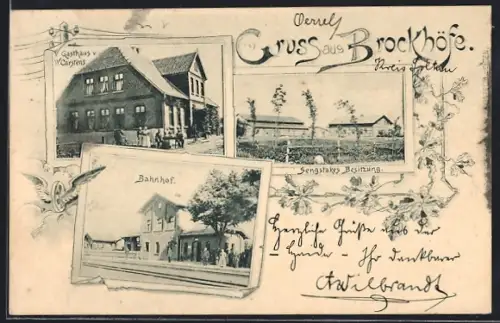 Oerrel
Gruss aus Brockhöfe.
Gasthaus v.
Carstens
Sengstakes Besitzung.
Bahnhof.
Herzliche Grüße aus der
- Heide - Ihr dankbarer
AWilbrandt